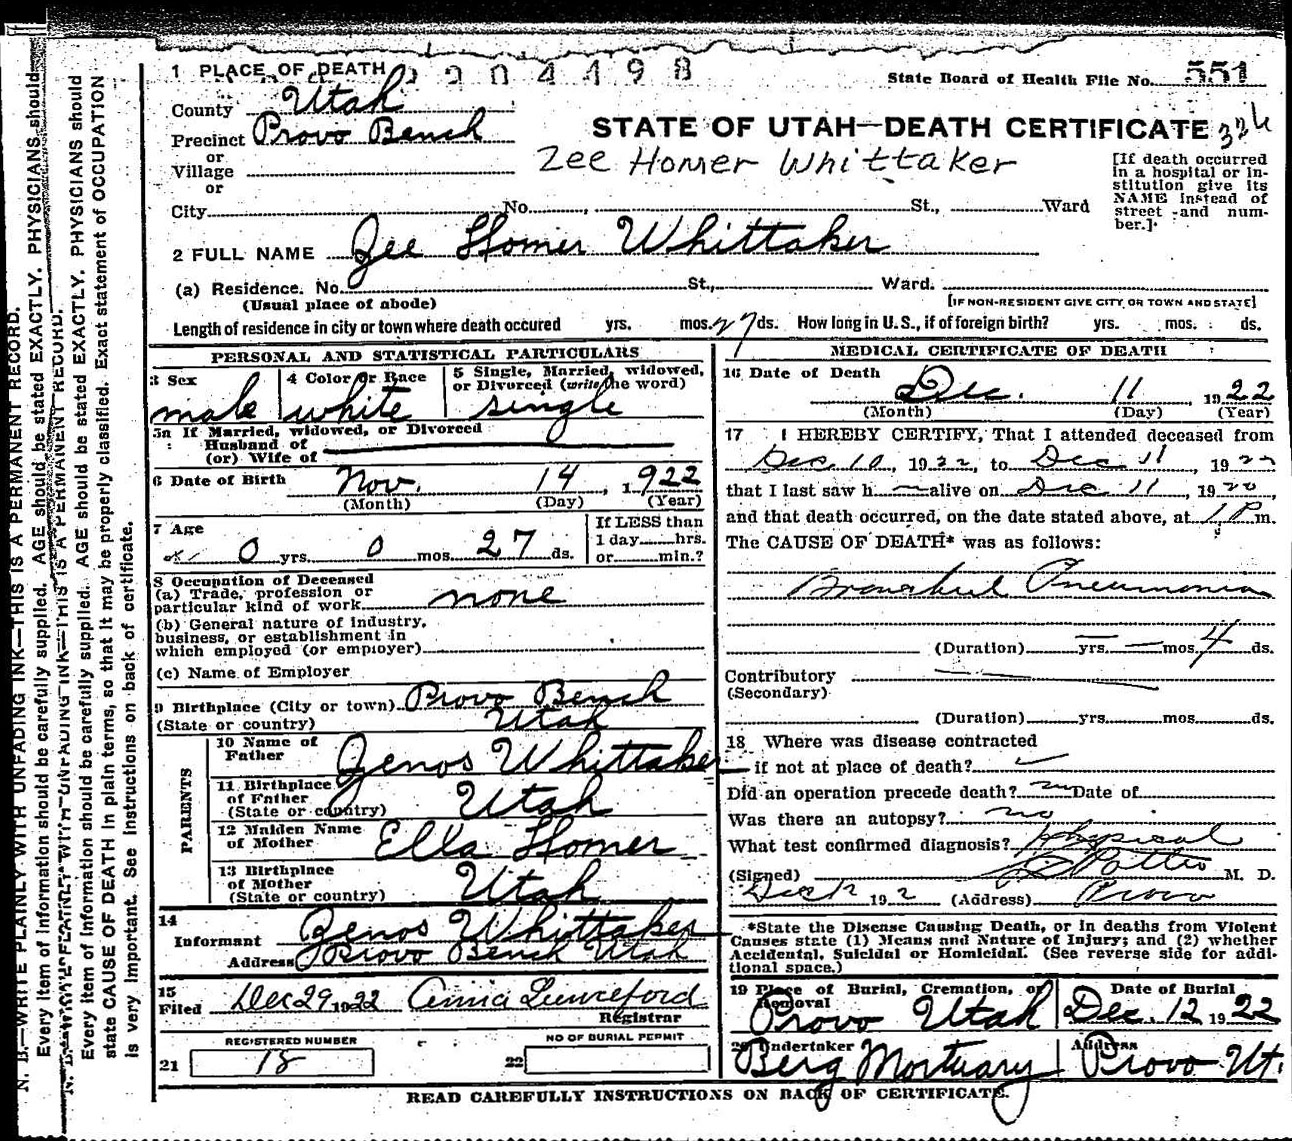 1 PLACE OF DEATH 2204498
State Board of Health File No. 551
County Utah
Precinct Provo Bench
STATE OF UTAH—DEATH CERTIFICATE 324
or
Village
Zee Homer Whittaker
[If death occurred in a hospital or institution give its NAME instead of street and number.].
or
City No. St., Ward
2 FULL NAME Zee Homer Whittaker
(a) Residence. No. St., Ward.
(Usual place of abode) [IF NON-RESIDENT GIVE CITY OR TOWN AND STATE]
Length of residence in city or town where death occured yrs. mos. 27 ds. How long in U.S., if of foreign birth? yrs. mos. ds.
PERSONAL AND STATISTICAL PARTICULARS
3 Sex 4 Color or Race 5 Single, Married, widowed, or Divorced (write the word)
male white single
5a If Married, widowed, or Divorced
Husband of
(or) Wife of
6 Date of Birth Nov. 14, 1922
(Month) (Day) (Year)
7 Age 0 yrs. 0 mos. 27 ds.
If LESS than
1 day hrs.
or min.?
8 Occupation of Deceased
(a) Trade, profession or
particular kind of work none
(b) General nature of industry,
business, or establishment in
which employed (or employer)
(c) Name of Employer
9 Birthplace (City or town) Provo Bench
(State or country) Utah
PARENTS
10 Name of Father Zenos Whittaker
11 Birthplace of Father (State or country) Utah
12 Maiden Name of Mother Ella Homer
13 Birthplace of Mother (State or country) Utah
14
Informant Zenos Whittaker
Address Provo Bench Utah
15
Filed Dec 29 1922 Annia Lunceford
Registrar
REGISTERED NUMBER
21 18
NO OF BURIAL PERMIT
22
MEDICAL CERTIFICATE OF DEATH
16 Date of Death
Dec. 11 1922
(Month) (Day) (Year)
17 I HEREBY CERTIFY, That I attended deceased from
Dec 10, 1922, to Dec 11, 1922
that I last saw h alive on Dec 11, 1922,
and that death occurred, on the date stated above, at 1 P m.
The CAUSE OF DEATH* was as follows:
Bronchial Pneumonia
(Duration) yrs. mos. 4 ds.
Contributory
(Secondary)
(Duration) yrs. mos. ds.
18 Where was disease contracted
if not at place of death?
Did an operation precede death? no Date of
Was there an autopsy? no
What test confirmed diagnosis? Physical
(Signed) M. D.
Dec 12 192 (Address) Provo
*State the Disease Causing Death, or in deaths from Violent
Causes state (1) Means and Nature of Injury; and (2) whether
Accidental, Suicidal or Homicidal. (See reverse side for addi-
tional space.)
19 Place of Burial, Cremation, or Removal Date of Burial
Provo Utah Dec. 12 1922
20 Undertaker Address
Berg Mortuary Provo Ut.
READ CAREFULLY INSTRUCTIONS ON BACK OF CERTIFICATE.
N. B.—WRITE PLAINLY WITH UNFADING INK—THIS IS A PERMANENT RECORD.
Every item of information should be carefully supplied. AGE should be stated EXACTLY. PHYSICIANS should
Every item of information should be carefully supplied. AGE should be stated EXACTLY. PHYSICIANS should
state CAUSE OF DEATH in plain terms, so that it may be properly classified. Exact statement of OCCUPATION
is very important. See instructions on back of certificate.